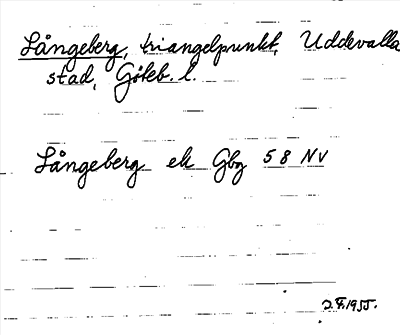 Långeberg, triangelpunkt, Uddevalla
stad, Göteb. l.
Långeberg ek Gbg 58 NV
1955.